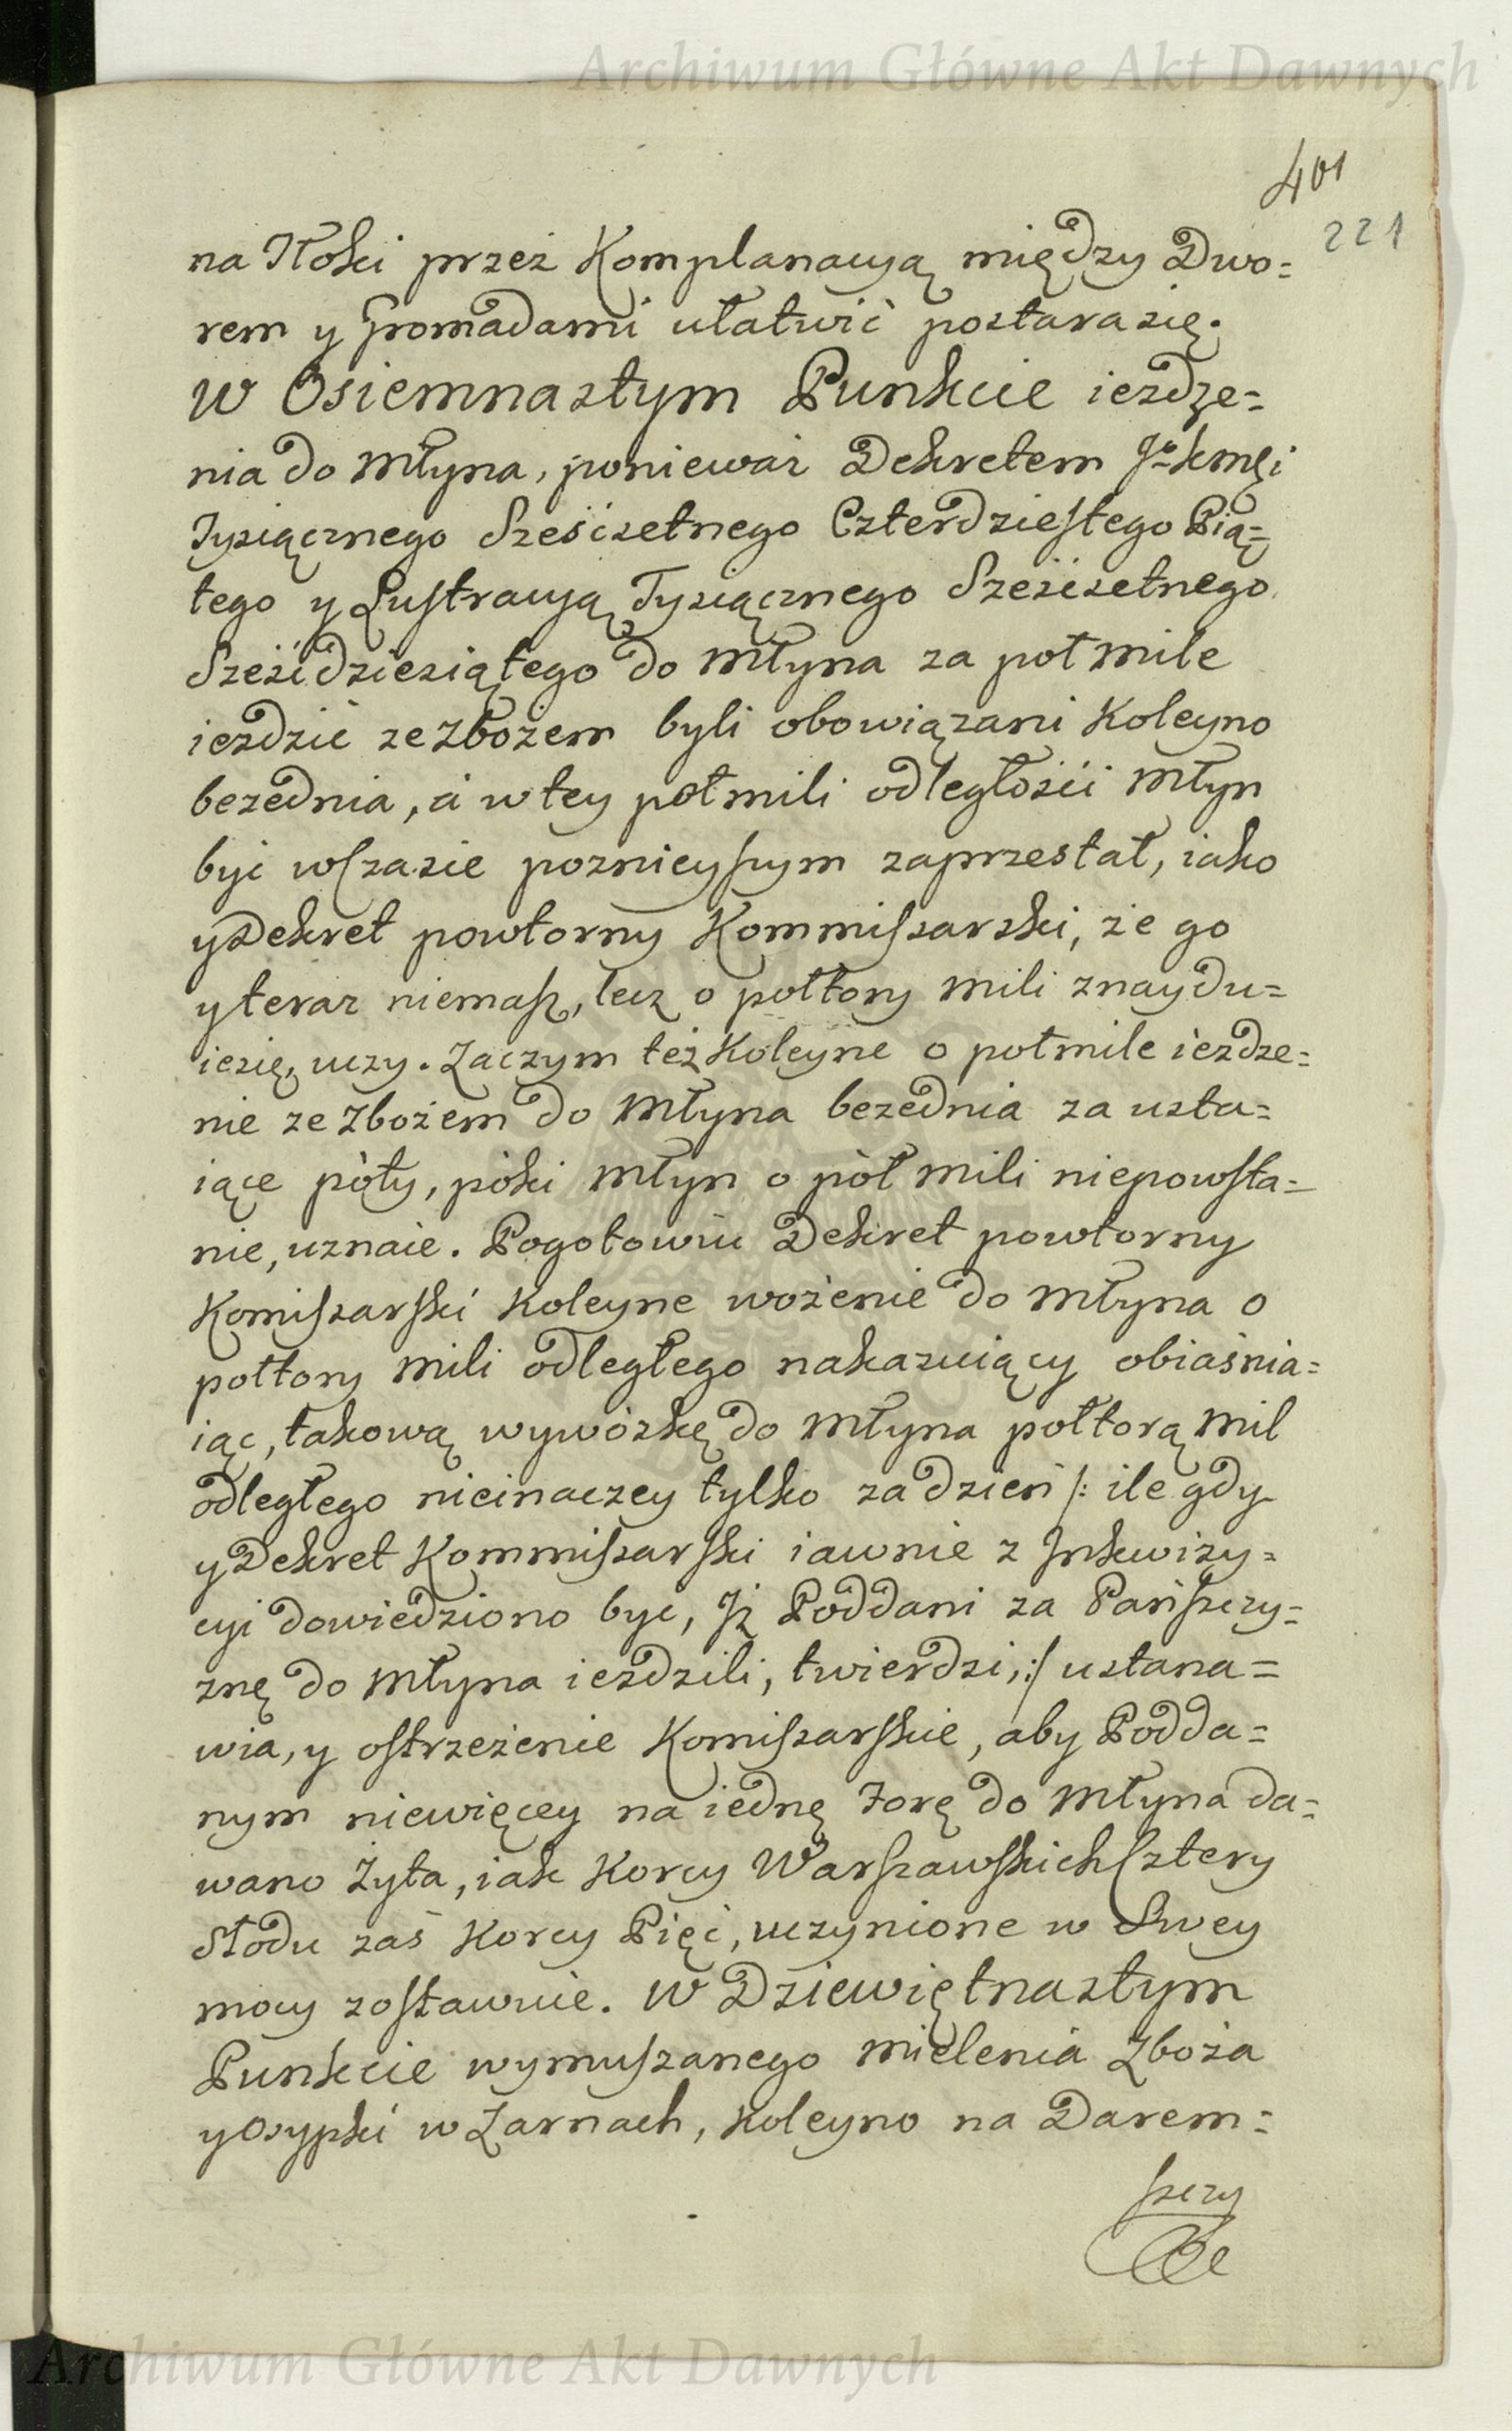 Archiwum Główne Akt Dawnych
401
221
na Włoki przez Komplanacyą między Dwo=
rem y Gromadami ułatwić postara się.
W Osiemnastym Punkcie iezdze=
nia do Młyna, ponieważ Dekretem
Tysiącznego Sześćsetnego Czterdziestego Pią=
tego y Lustracyą Tysiącznego Sześćsetnego
Sześćdziesiątego do Młyna za poł mile
iezdzić ze Zbożem byli obowiązani Koleyno
bezednia, a w tey poł mili odległości Młyn
być wczasie poznieyszym zaprzestał, iako
y Dekret powtorny Kommissarski, że go
y teraz niemasz, lecz o połtory mili znaydu=
iesię, uczy. Zaczym też Koleyne o poł mile ieżdże=
nie ze Zbożem do Młyna bezednia za usta=
iące póty, póki Młyn o pół mili niepowsta=
nie, uznaie. Pogotowiu Dekret powtorny
Komissarski Koleyne wożenie do Młyna o
połtory mili odległego nakazuiący obiaśnia=
iąc, takową wywózkę do Młyna połtorą mil
odległego nieinaczey tylko za dzień /: ile gdy
y Dekret Kommissarski iawnie z Inkwizy=
cyi dowiedziono być, Iż Poddani za Pańszczy=
znę do Młyna iezdzili, twierdzi, :/ ustana=
wia, y ostrzeżenie Komissarskie, aby Podda=
nym niewięcey na iednę Forę do Młyna da=
wano Żyta, iak Korcy Warszawskich cztery
Słodu zaś Korcy Pięć, uczynione w Swey
mocy zostawuie. W Dziewiętnastym
Punkcie wymuszanego mielenia Zboża
y Osypki w Żarnach, Koleyno na Darem=
szczy
Archiwum Główne Akt Dawnych